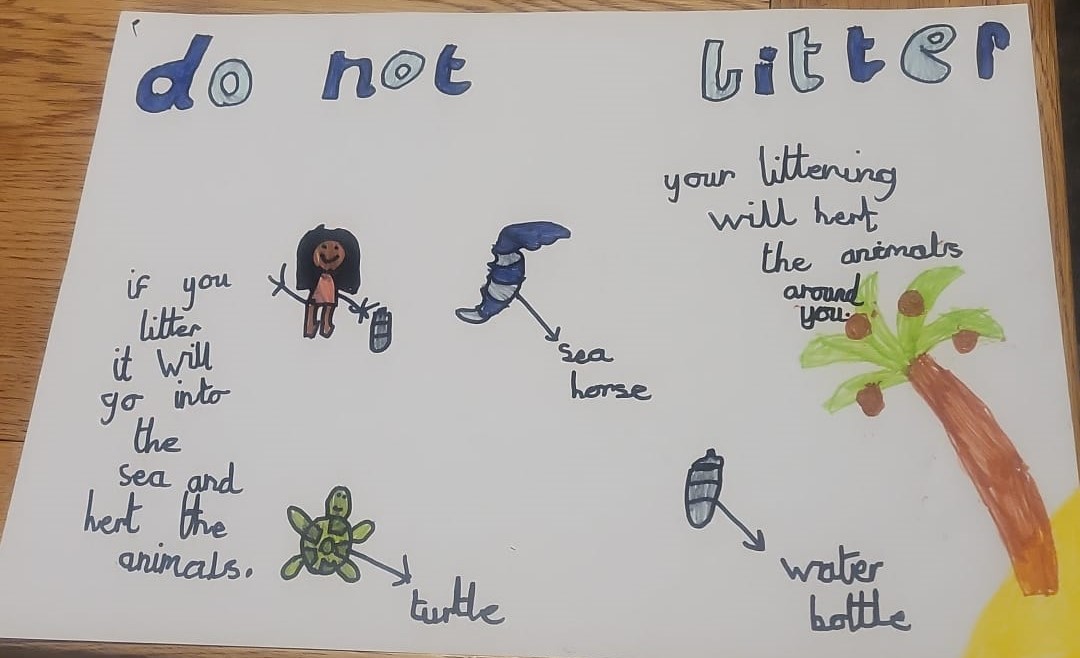 do not litter
your littening
will hert
the animals
around
you.
if you
litter
it will
go into
the
sea and
hert the
animals.
sea
horse
turtle
water
bottle